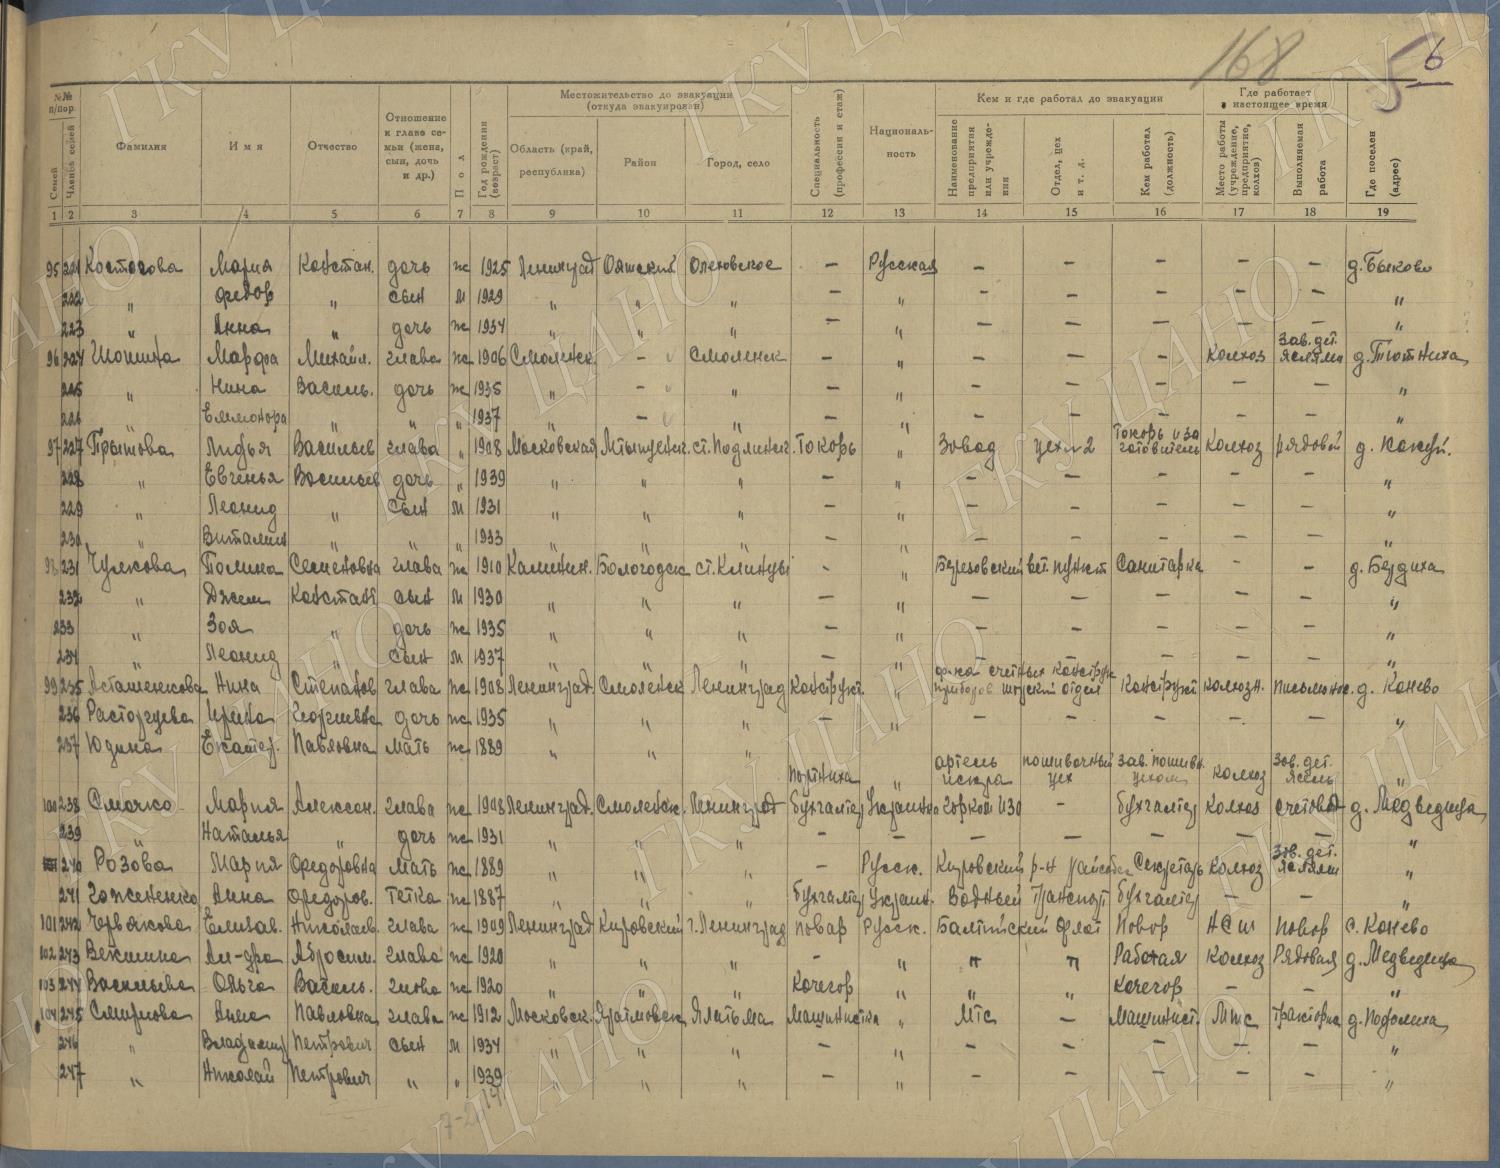 168
56
№№ п/пор.
Семей
Членов семей
Фамилия
Имя
Отчество
Отношение к главе семьи (жена, сын, дочь и др.)
Пол
Год рождения (возраст)
Местожительство до эвакуации (откуда эвакуирован)
Область (край, республика)
Район
Город, село
Специальность (профессия и стаж)
Национальность
Кем и где работал до эвакуации
Наименование предприятия или учреждения
Отдел, цех и т. д.
Кем работал (должность)
Где работает в настоящее время
Место работы (учреждение, предприятие, колхоз)
Выполняемая работа
Где поселен (адрес)
1 2 3 4 5 6 7 8 9 10 11 12 13 14 15 16 17 18 19
95 221 Костосова Мария Констан. дочь ж 1925 Ленинград Оятский — Русская — — — — — д. Быково
222 " Федор " сын м 1929 " " " — " — — — — — "
223 " Анна " дочь ж 1934 " " " — " — — — — — "
96 224 Шонина Марфа Михайл. глава ж 1906 Смоленск. — Смоленск — " — — — колхоз зав. дет. яслями д. Плотниха
225 " Нина Василь. дочь ж 1935 " — " — " — — — — — "
226 " Еллионора " " " 1937 " — " — " — — — — — "
97 227 Лидья Васильев глава " 1908 Московская Мытищенс. ст. Подлипки токарь " Завод цех №2 токарь колхоз рядовой д.
228 " Евгенья Васильев дочь " 1939 " " " — " — — — — — "
229 " Леонид " сын м 1931 " " " — " — — — — — "
230 " Виталий " " " 1933 " " " — " — — — — — "
98 231 Чулкова Полина Семеновна глава ж 1910 Калинин. Бологодск ст. Клинцы — " Березовский вет. пункт Санитарка — — д. Бездиха
232 " Констант сын м 1930 " " " — " — — — — — "
233 " Зоя " дочь ж 1935 " " " — " — — — — — "
234 " Леонид " сын м 1937 " " " — " — — — — — "
99 235 Асташенкова Нина Степанов глава ж 1908 Ленинград. Смоленск Ленинград Конструкт. " приборов отдел Конструкт колхозн. д. Конево
236 Расторгуева Ирина Георгиевна дочь ж 1935 " " " — " — — — — — "
237 Юдина Екатер. Павловна мать ж 1889 " " " портниха " артель искра пошивочный цех зав. пошивн. цехом колхоз зав. дет. ясель "
100 238 Смочко Мария Алексан. глава ж 1908 Ленинград. Смоленск. Ленинград бухгалтер Украинка горком ИЗО — бухгалтер колхоз счетовод д. Медведица
239 " Наталья " дочь ж 1931 " " " — — — — — — — "
240 Розова Мария Федоровна мать ж 1889 " " " — Русск. Кировский р-н Секретарь колхоз зав. дет. яслями "
241 Гажененко Анна Федоров. тетка ж 1887 " " " бухгалтер Украин. Водный Транспорт бухгалтер — — "
101 242 Червякова Елизав. Николаев глава ж 1909 Ленинград Кировский г. Ленинград повар Русск. Балтийский Флот Повар НСШ повар с. Конево
102 243 Векшина Ал-дра Абросим. глава ж 1920 " " " — " " " Рабочая колхоз Рядовая д. Медведица
103 244 Васильева Ольга Василь. глава ж 1920 " " " Кочегар " " " Кочегар — — "
104 245 Смирнова Анна Павловна глава ж 1912 Московск. Ялатьма Машинистка " МТС — Машинист. МТС д. Подолиха
246 " Владимир Петрович сын м 1934 " " " — " — — — — — "
247 " Николай Петрович " " 1939 " " " — " — — — — — "
ГКУ ЦАНО